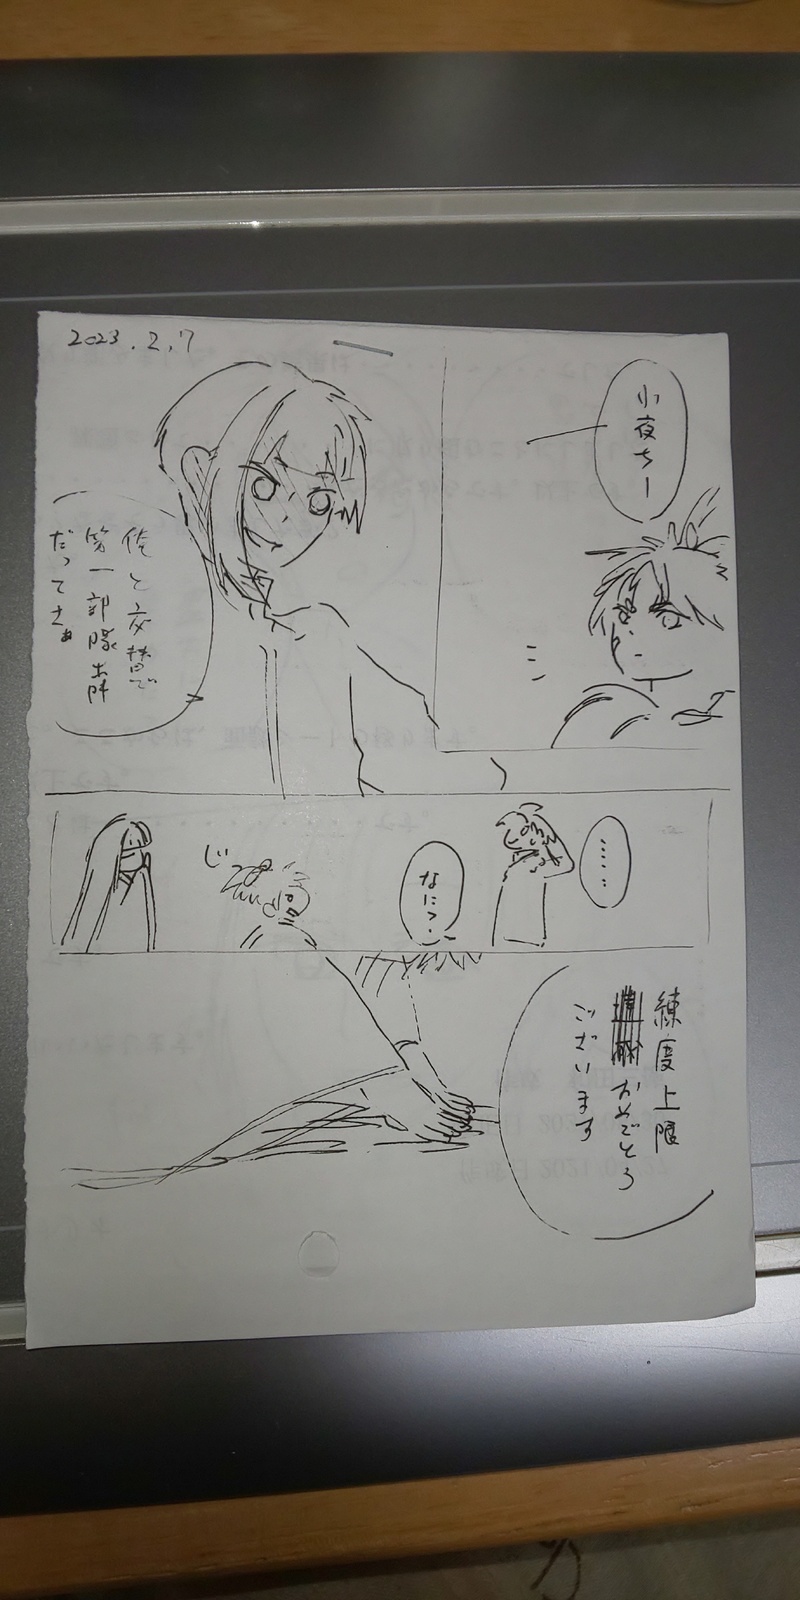 2023.2.7
小夜ちー
俺と交替で
第一部隊、
だってさぁ
……
なにっ
じ
練度上限
おめでとう
ございます